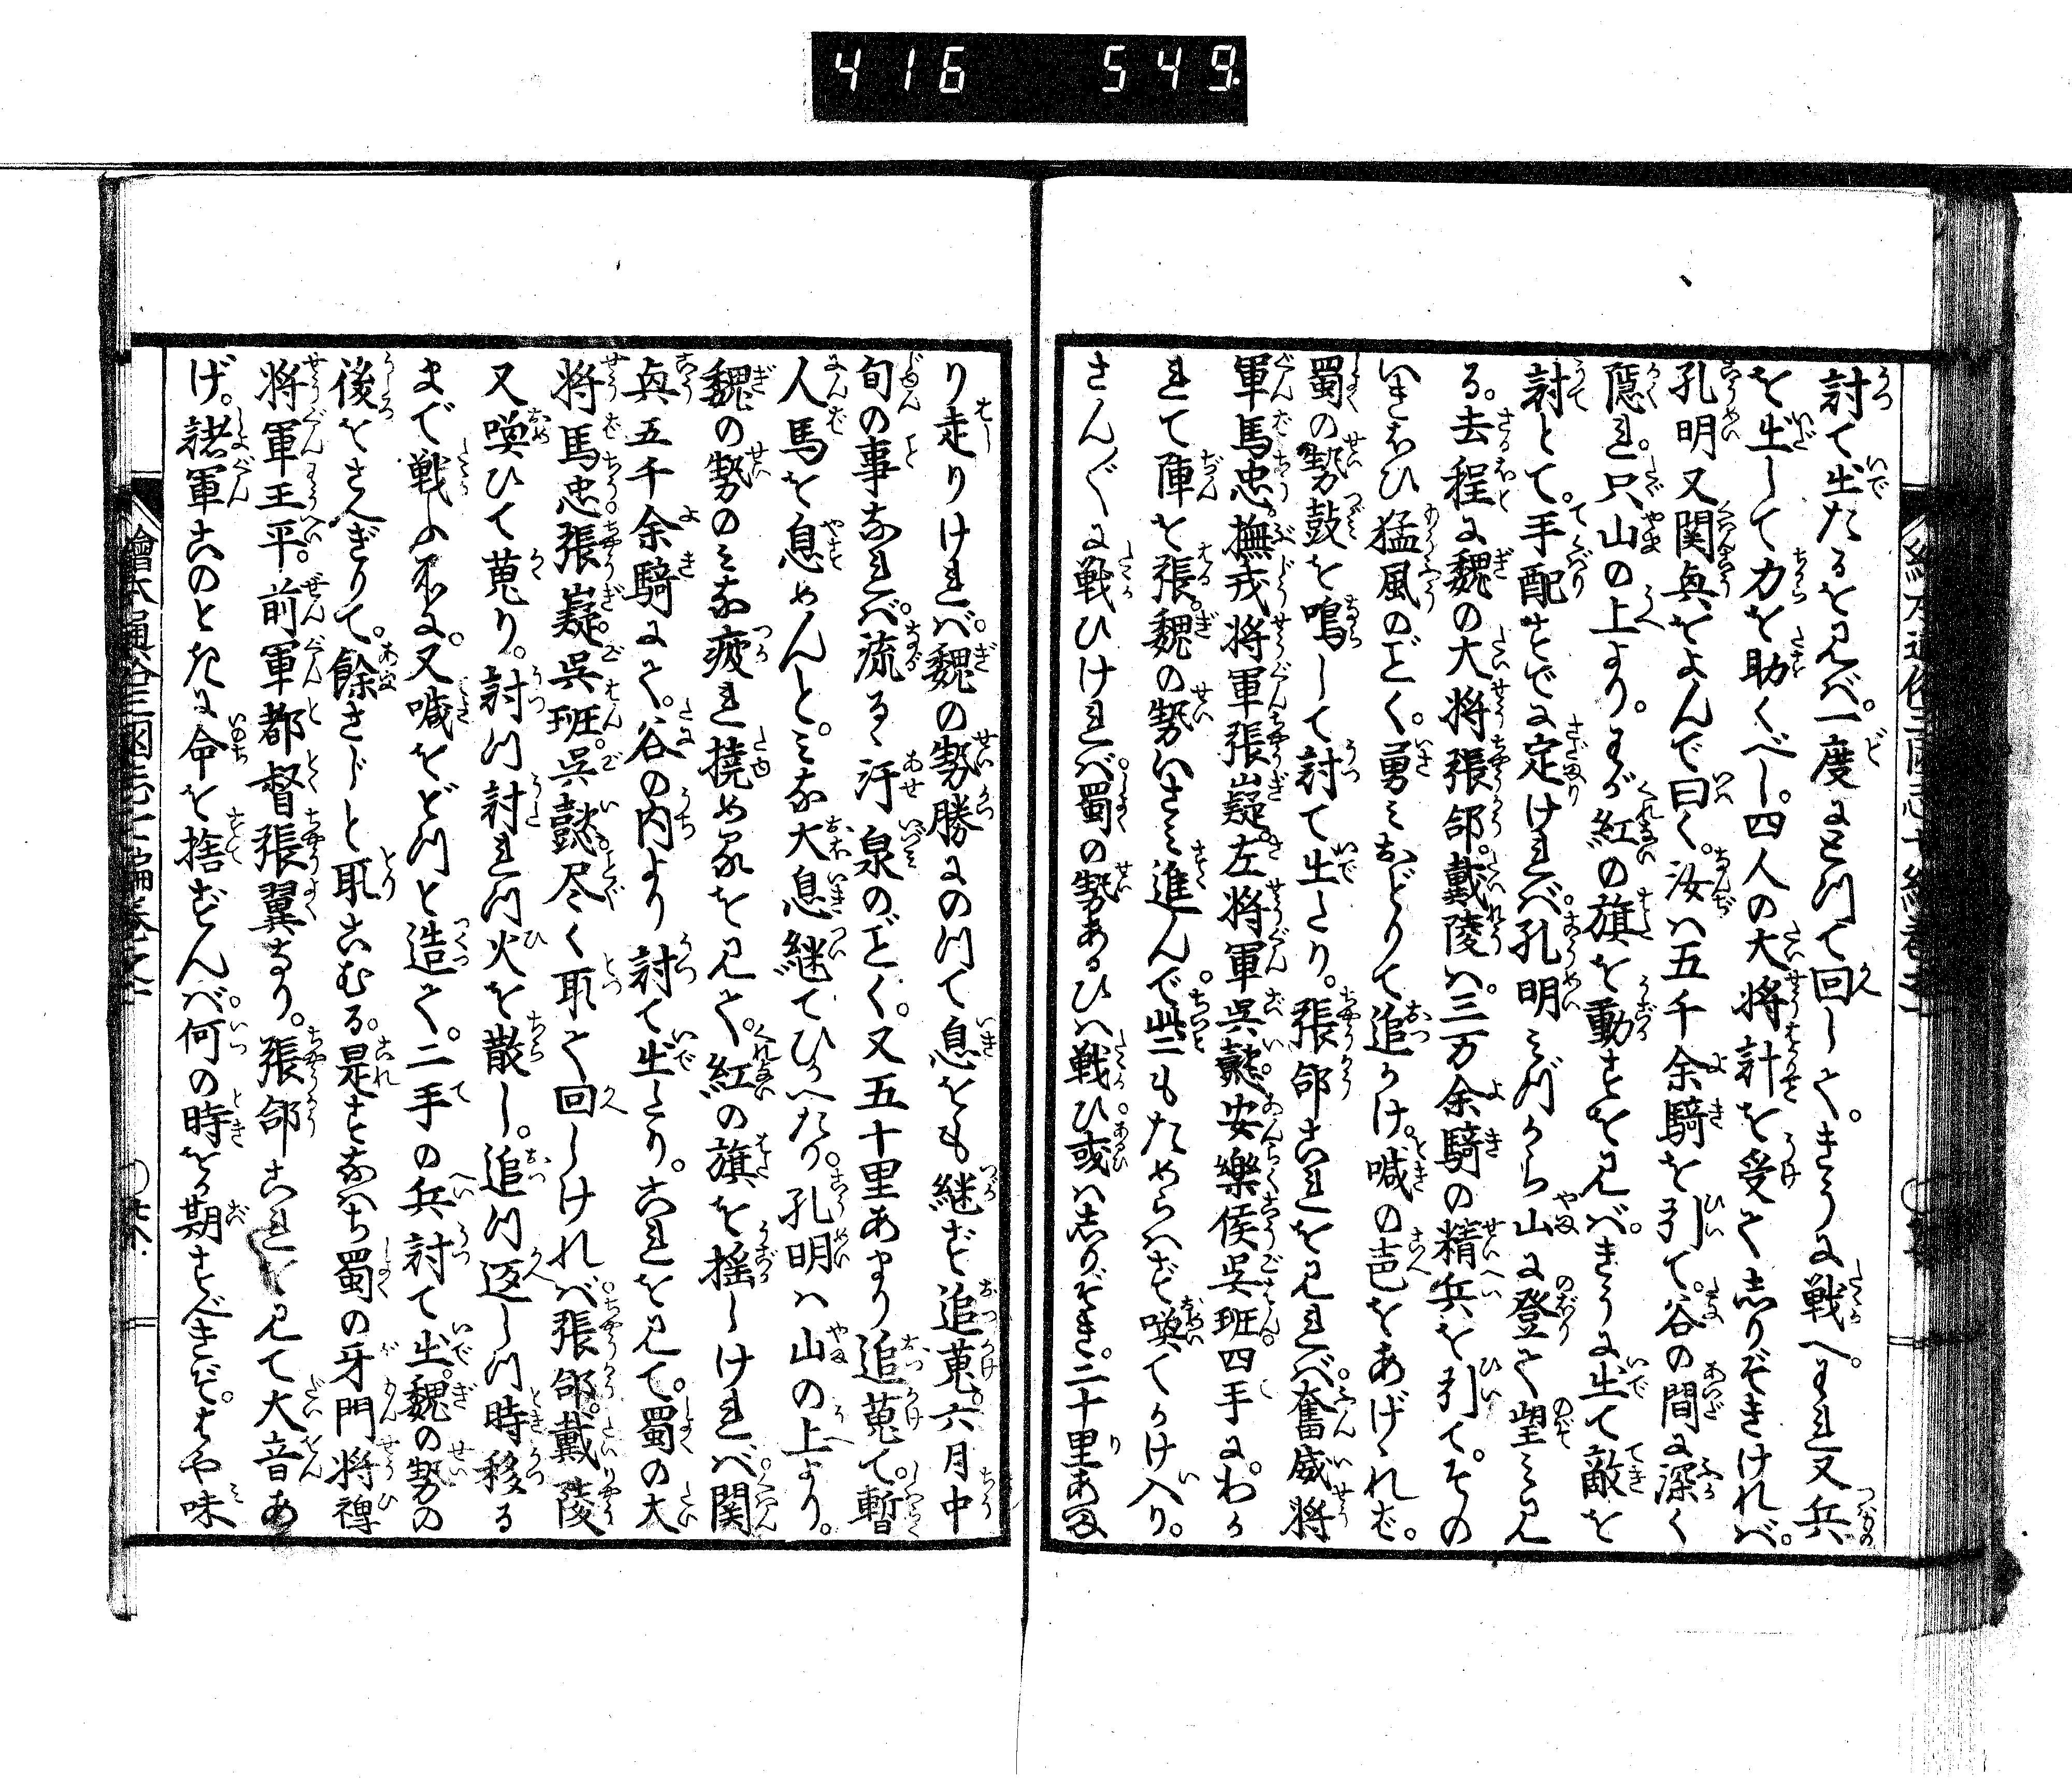 416 549
討て出たるを見バ。一度にどつて回して。きうに戦へ。われ又兵
を出して力を助くべし。四人の大将計を受てしりぞきければ。
孔明又関興をよんで曰く。汝ハ五千余騎を引て。谷の間に深く
隠れ。只山の上より。わが紅の旗を動すを見バ。きうに出て敵を
討とて。手配すでに定けれバ。孔明ミづから山に登て望ミ見
る。去程に魏の大将張郃。戴陵ハ。三万余騎の精兵を引て。その
いきおひ猛風のごとく。勇ミおどりて追かけ。喊の声をあげゝれば。
蜀の勢鼓を鳴して討て出たり。張郃これを見れバ。奮威将
軍馬忠。撫戎将軍張嶷。左将軍呉懿。安樂侯呉班。四手にわか
れて陣を張。魏の勢いさミ進んで些もためらハず喚てかけ入り。
さん〴〵に戦ひけれバ。蜀の勢あるひハ戦ひ。或ハしりぞき。二十里あま
り走りけれバ。魏の勢勝にのつて息をも継ず追蒐。六月中
旬の事なれバ。流るゝ汗泉のごとく。又五十里あまり追蒐て。暫
人馬を息めんと。ミな大息継てひかへたり。孔明ハ山の上より。
魏の勢のミな疲れ撓めるを見て。紅の旗を揺しけれバ。関
興五千余騎にて。谷の内より討て出たり。これを見て。蜀の大
将馬忠。張嶷。呉班。呉懿。尽く取て回しけれバ。張郃。戴陵
又喚ひて蒐り。討つ討れつ火を散し。追つ返しつ時移る
まで戦ふ所に。又喊をどつと造て。二手の兵討て出。魏の勢の
後をさへぎりて。餘さじと取こむる。是すなハち蜀の牙門将裨
将軍王平。前軍都督張翼なり。張郃これを見て大音あ
げ。諸軍このときに命を捨ずんバ。何の時をか期すべきぞ。はや味
繪本通俗三國志七編巻之